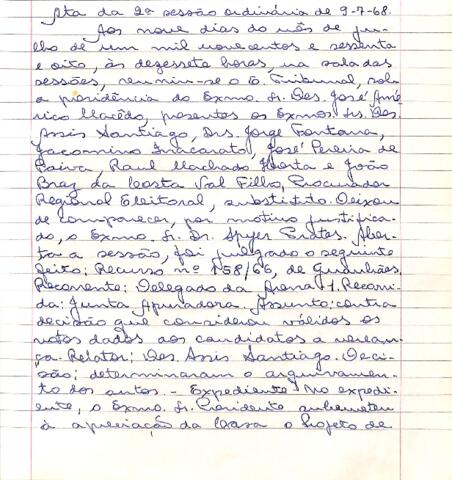 Ata da 2ª sessão ordinária de 9-7-68.
Aos nove dias do mês de ju-
lho de um mil novecentos e sessenta
e oito, às dezessete horas, na sala das
sessões, reuniu-se o E. Tribunal, sob
a presidência do Exmo. Sr. Des. José Amé-
rico Macêdo, presentes os Exmos. Srs. Des.
Assis Santiago, Drs. Jorge Fontana,
Jacomino Inacarato, José Pereira de
Paiva, Raul Machado Horta e João
Braz da Costa Val Filho, Procurador
Regional Eleitoral, substituto. Deixou
de comparecer, por motivo justifica-
do, o Exmo. Sr. Dr. Spyer Prates. Aber-
ta a sessão, foi julgado o seguinte
feito: Recurso nº 158/66, de Guanhães.
Recorrente: Delegado da Arena 1. Recorri-
da: Junta Apuradora. Assunto: contra
decisão que considerou válidos os
votos dados aos candidatos a verean-
ça. Relator: Des. Assis Santiago. Deci-
são: determinaram o arquivamen-
to dos autos. - Expediente - No expedi-
ente, o Exmo. Sr. Presidente submeteu
à apreciação da Casa o Projeto de